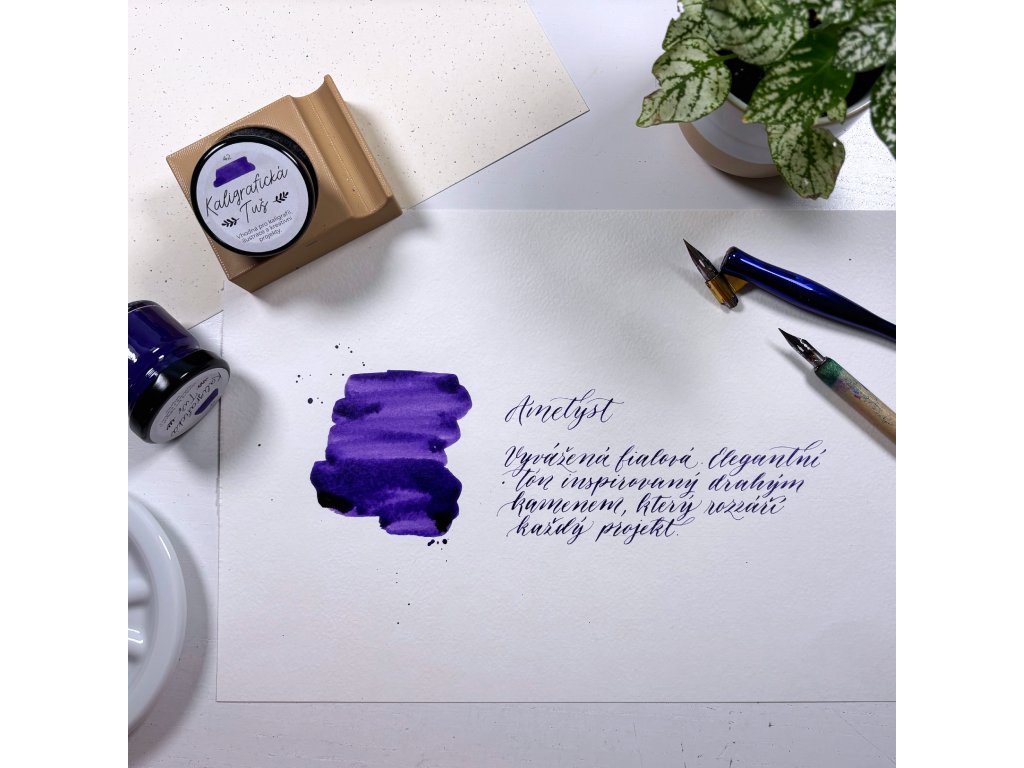 42
Kaligrafická
Tuš
Vhodná pro kaligrafii,
ilustrace a kreativní
projekty.
Kaligrafická
Tuš
Ametyst
Vyvážená fialová. Elegantní
tón inspirovaný drahým
kamenem, který rozzáří
každý projekt.